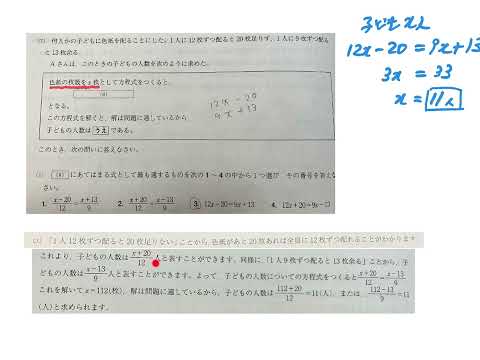 (7) 何人かの子どもに色紙を配ることにした。1人に12枚ずつ配ると20枚足りず、1人に9枚ずつ配ると13枚余る。
Aさんは、このときの子どもの人数を次のように求めた。
色紙の枚数をx枚として方程式をつくると、
(a)
となる。
この方程式を解くと、解は問題に適しているから
子どもの人数は うえ である。
12x - 20
9x + 13
このとき、次の問いに答えなさい。
(a) にあてはまる式として最も適するものを次の1～4の中から1つ選び、その番号を答えなさい。
1. x-20/12 = x+13/9 2. x+20/12 = x-13/9 3. 12x-20=9x+13 4. 12x+20=9x-
子ども x人
12x-20 = 9x+13
3x = 33
x = 11人
「1人12枚ずつ配ると20枚足りない」ことから、色紙があと20枚あれば全員に12枚ずつ配れることがわかります
これより、子どもの人数は x+20/12 人と表すことができます。同様に、「1人9枚ずつ配ると13枚余る」ことから、子
どもの人数は x-13/9 人と表すことができます。よって、子どもの人数についての方程式をつくると x+20/12 = x-13/9
これを解いて x=112(枚)。解は問題に適しているから、子どもの人数は 112+20/12 =11(人)、または、112-13/9 =11
(人)と求められます。